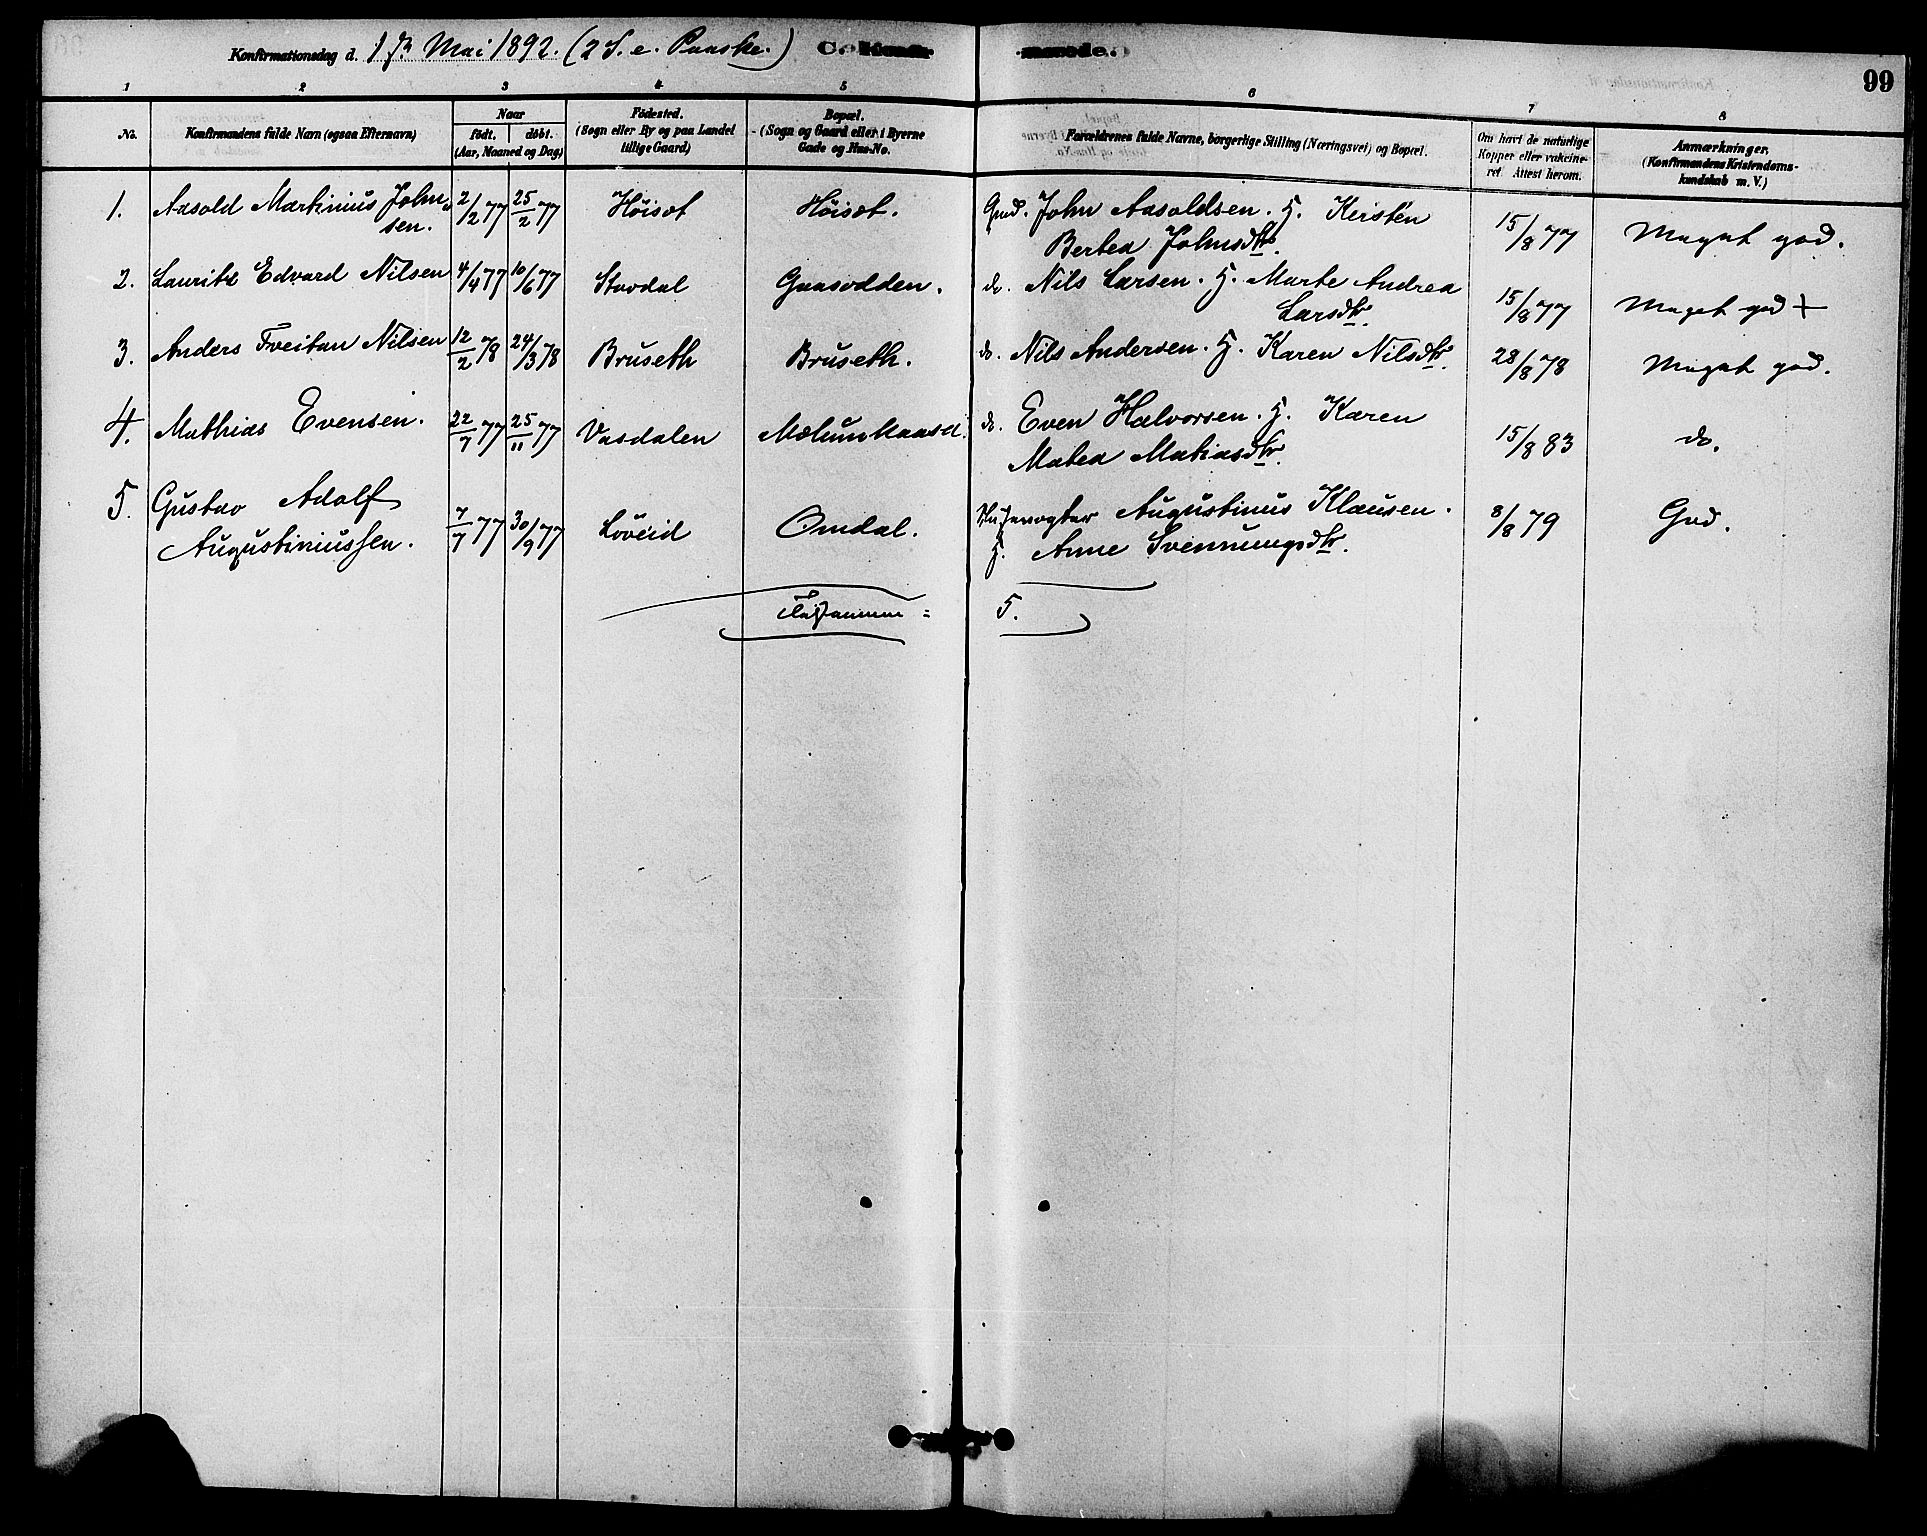 Konfirmationsdag d. 1ste Mai 1892. (2 S. e. Paaske.)
99
1 2 3 4 5 6 7 8
No.
Konfirmandens fulde Navn (ogsaa Efternavn)
Naar
födt. döbt.
(Aar, Maaned og Dag)
Födested.
(Sogn eller By og paa Landet
tillige Gaard)
Bopæl.
(Sogn og Gaard eller i Byerne
Gade og Hus-No.
Forældrenes fulde Navne, borgerlige Stilling (Næringsvei) og Bopæl.
Om havt de naturlige
Kopper eller vakcine-
ret. Attest herom.
Anmærkninger.
(Konfirmandens Kristendoms-
kundskab m. V.)
1. Aasold Martinius John- 2/2 77 25/2 77 Höisæt Höisæt. Grd. John Aasoldsen. H. Kirsten 15/8 77 Meget god.
sen. Bertea Johnsdtr.
2. Lauritz Edvard Nilsen 4/4 77 10/6 77 Stavdal Gaasodden. do. Nils Larsen. H. Marte Andrea 15/8 77 Meget god +
Larsdtr.
3. Anders Treitan Nilsen 12/2 78 24/3 78 Bruseth Bruseth. do. Nils Andersen. H. Karen Nilsdtr. 28/8 78 Meget god.
4. Mathias Evensen. 22/7 77 25/11 77 Vasdalen do. Even Halvorsen. H. Karen 15/8 83 do.
Matea Matiasdtr.
5. Gustav Adolf 7/7 77 30/9 77 Löveid Omdal. Augustinus Klausen. 8/8 79 God.
Augustiniussen. H. Anne Svennungsdtr.
Tilsammen = 5.